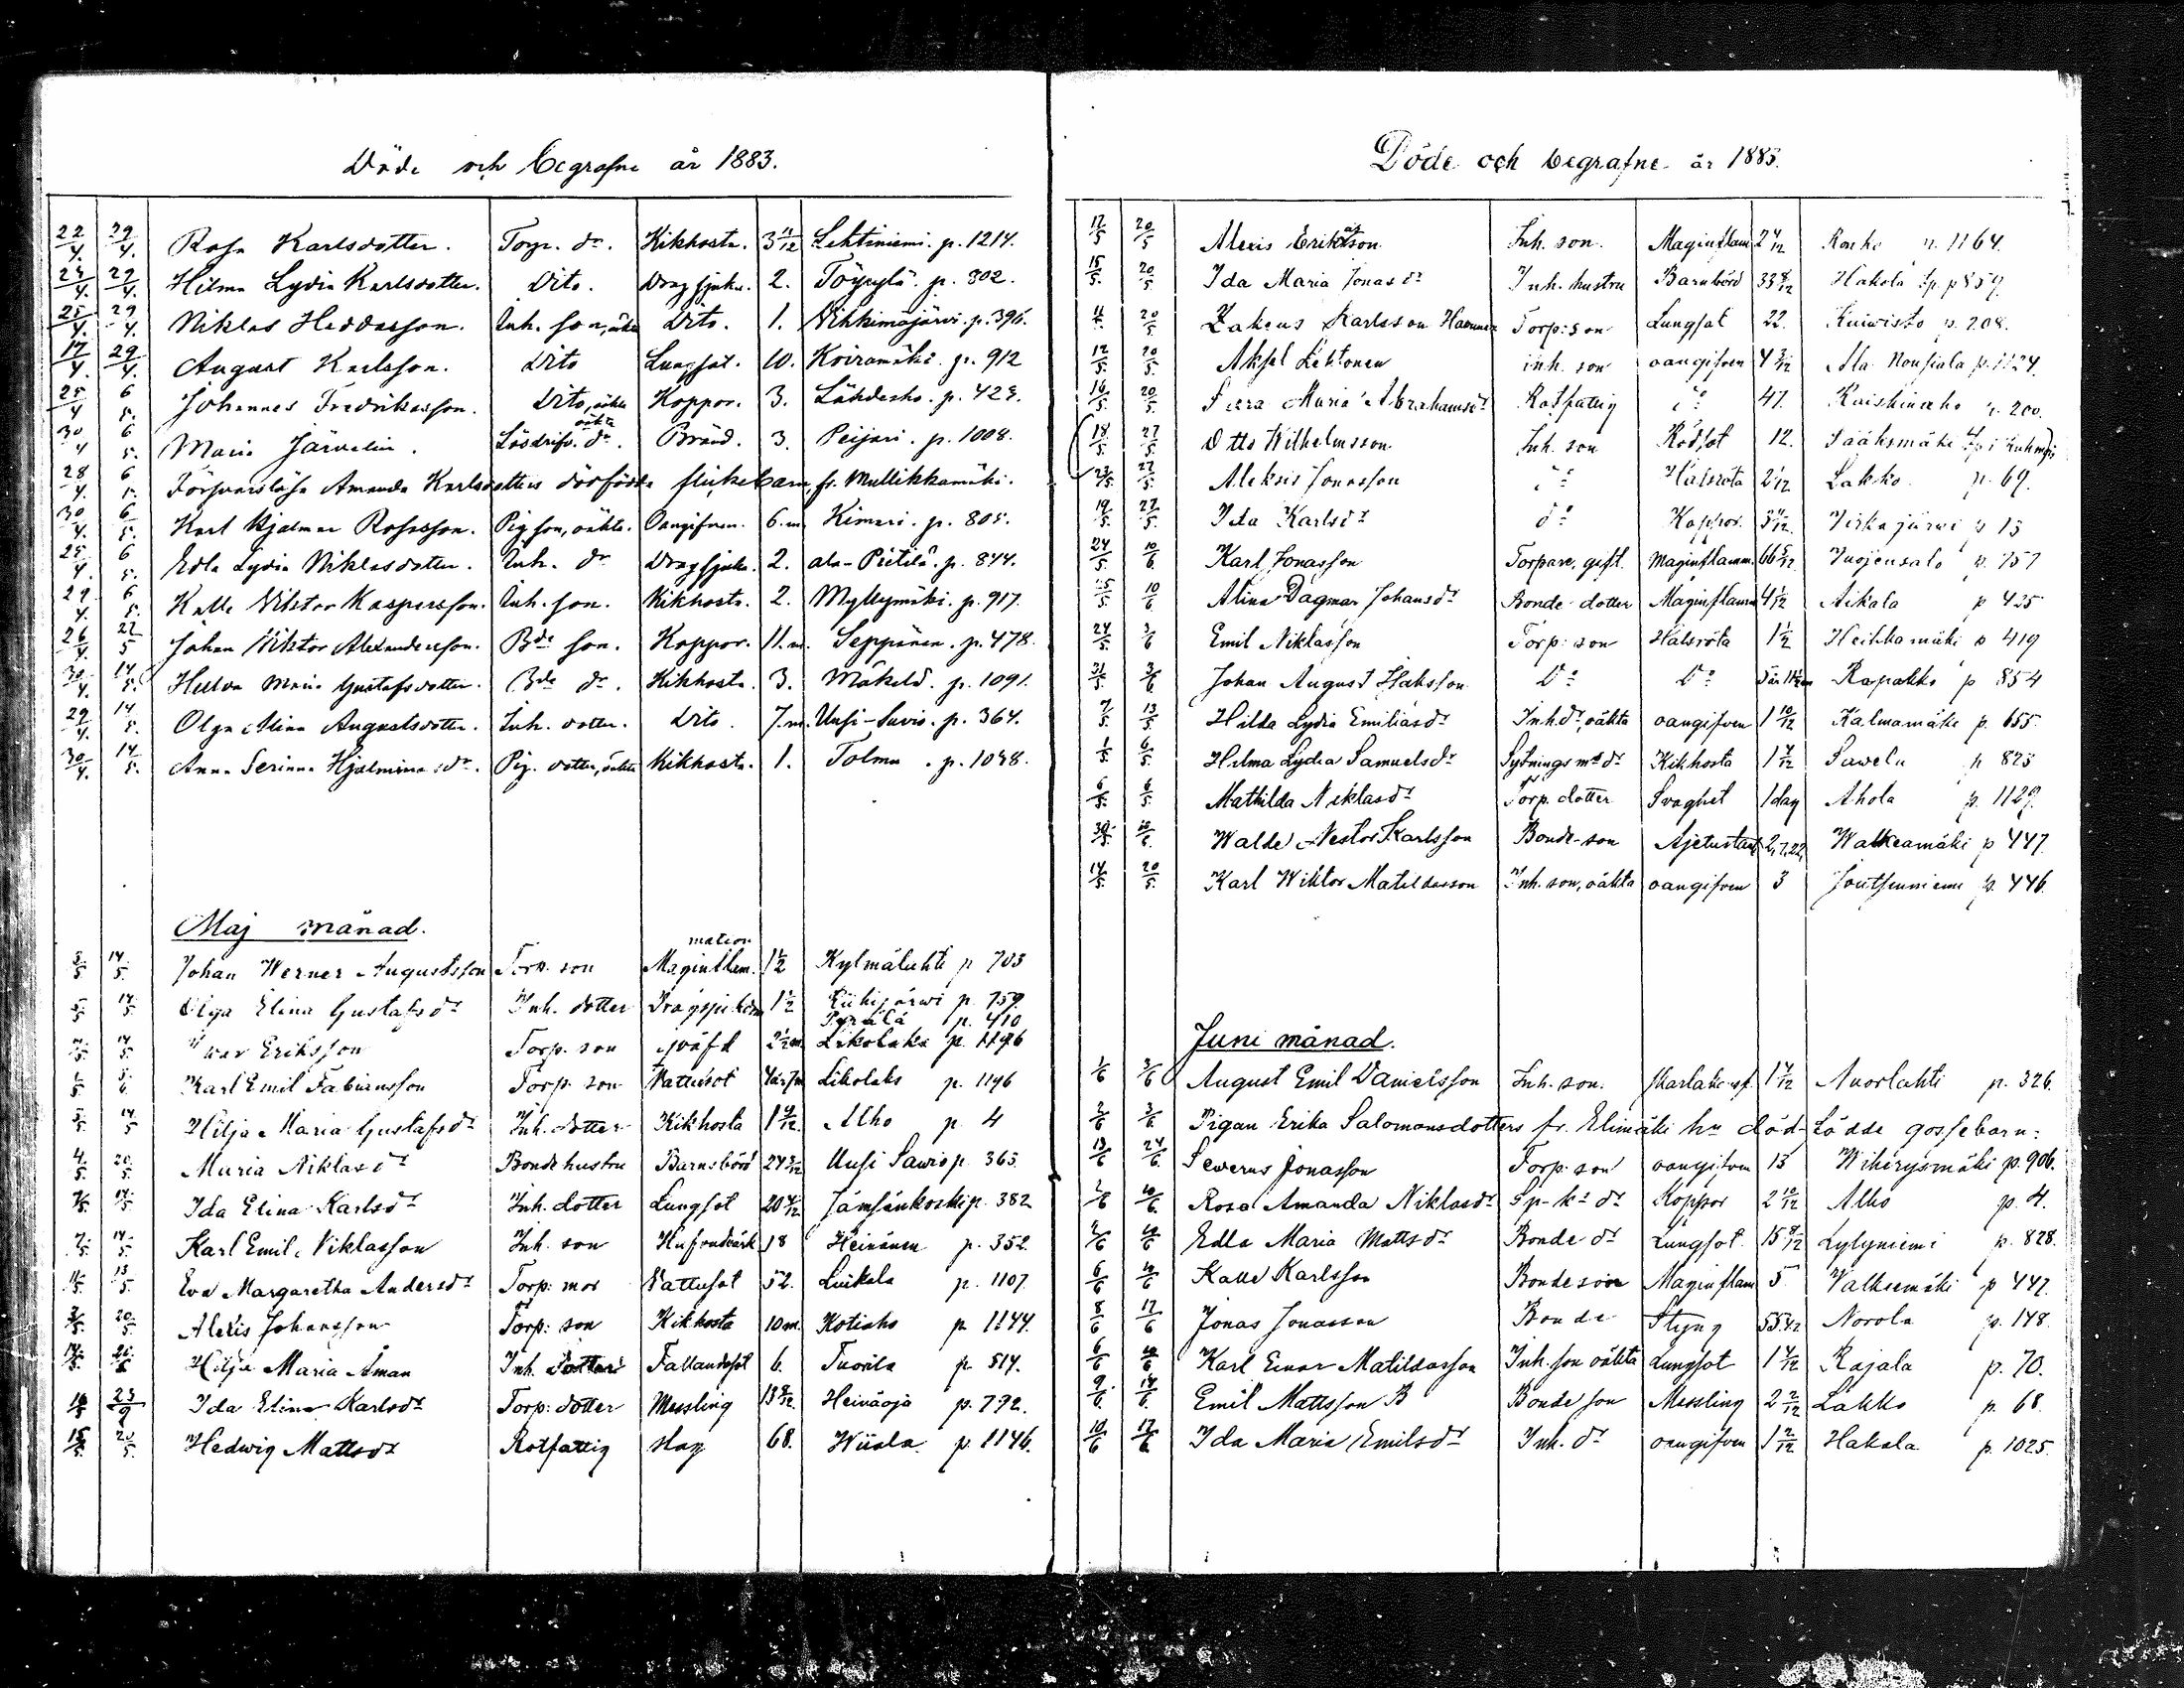 Döde och begrafne år 1883.
22/4. 29/4. Rosa Karlsdotter. Torp. dr. Kikhosta. 3 11/12 Lehtiniemi. p. 1214.
24/4. 29/4. Hilma Lydia Karlsdotter. Dito. Dragsjuka. 2. Töyrylä. p. 802.
25/4. 29/4. Niklas Heddasson. Inh. son, oäkta Dito. 1. Vihkimäjärvi. p. 396.
17/4. 29/4. August Karlsson. Dito Lungsot. 10. Koiramäki. p. 912
25/4 6/5. Johannes Fredrikasson. Dito, oäkta Koppor. 3. Lähdesho. p. 423.
oäkta
30/4 6/5. Maria Järvelin. Lösdrifv. dr. Bränd. 3. Peijari. p. 1008.
28/4. 6/5. Försvarslösa Amanda Karlsdotters dödfödda flickebarn, fr. Mullikkamäki.
30/4. 6/5. Karl Hjalmar Rosasson. Pig. son, oäkta. Oangifven. 6. m Kimari. p. 805.
25/4. 6/5. Edla Lydia Niklasdotter. Inh. dr Dragsjuka. 2. ala-Pietilä. p. 844.
29/4. 6/5. Kalle Viktor Kaspersson. Inh. son. Kikhosta. 2. Myllymäki. p. 917.
26/4. 22/5 Johan Viktor Alexandersson. Bde son. Koppor. 11. m. Seppänen. p. 478.
30/4. 14/5. Hulda Maria Gustafsdotter. Bde dr. Kikhosta. 3. Mäkelä. p. 1091.
29/4. 14/5. Olga Alina Augustsdotter. Inh. dotter. Dito. 7. m. Uusi-Savio. p. 364.
30/4. 14/5. Anna Serinna Hjelmina dr. Pig. dotter, oäkta Kikhosta. 1. Tolmu. p. 1048.
Maj månad.
mation
5/5 14/5. Johan Werner Augustsson Torp. son Maginflam. 1 1/2 Kylmälahti p 703
5/5 14/5. Olga Elina Gustafsdr Inh. dotter Dragsjukdom 1 1/2 Riihijärvi p. 759.
Pyrälä p. 410
14/5. Iwar Eriksson Torp. son qväfd 2 1/2 m. Likolaks p. 1196
1/5 Karl Emil Fabiansson Torp. son Vattusot 4år7m Likolaks p. 1196
5/5 14/5 Hilja Maria Gustafsdr Inh. dotter Kikhosta 1 9/12 Alho p. 4
4./5. 20./5. Maria Niklasdr Bonde hustru Barnsbörd 24 3/12 Uusi Sawio p. 363.
7/5. 14/5. Ida Elina Karlsdr Inh. dotter Lungsot 20 4/12 Jämsänkoski p. 382
7/5 14/5. Karl Emil Niklasson Inh. son Hufvudvärk 18 Heinänen p. 352.
11/5. 13/5. Eva Margaretha Andersdr Torp: mor Vattusot 52. Luikala p. 1107.
3/5. 20/5. Alexis Johansson Torp: son Kikhosta 10m. Kotiaho p 1144.
14/5. Hilja Maria Åman Inh. dotter Fallandesot 6. Tuovila p. 514.
Ida Elina Karlsdr Torp: dotter Messling 13 8/12. Heinäoja p. 792.
15/5. 20/5. Hedwig Mattsdr Rotfattig slag 68. Wiiala p. 1146.
Döde och begrafne år 1883.
12/5 20/5 Alexis Eriksson Inh. son. Maginflam 2 4/12 Rouho p. 1164.
15/5. 20/5. Ida Maria Jonasdr Inh. hustru Barnbörd 33 8/12 Hakola p. 859.
20/5 Zakeus Karlsson Torp: son Lungsot 22. Kuiwisto p. 208.
12/5. 20/5. Aksel Lehtonen inh. son oangifven 4 3/12 Ala Nousiala p. 1124.
16/5. 20/5. Sara Maria Abrahamsdr Rotfattig do 47. p. 200.
18/5. 27/5. Otto Wilhelmsson Inh. son Rödsot 12. Sääksmäki
23/5. 27/5. Aleksis Jonasson do Halsröta 2 1/12 Lakko. p. 69.
19/5. 27/5. Ida Karlsdr do Koppor. Jirkajärwi p 15
24/5. 10/6. Karl Jonasson Torpare, gift. Maginflamm. 66 5/12. Vuojensalo p. 757
25/5. 10/6 Alina Dagmar Johansdr Bonde dotter Maginflamm 4 1/12 Aikala p 425
24/5. 3/6 Emil Niklasson Torp: son Halsröta 1 1/2 Heikkamäki p 419
31/5. 3/6 Johan August Isaksson Do Do Rapakko p 854
7/5. 13/5. Hilda Lydia Emiliasdr Inh. dr, oäkta oangifven 1 10/12 Kalmamäki p. 655.
1/5 6/5. Hilma Lydia Samuelsdr Sytnings m. dr Kikhosta 1 7/12 Sawela p 825
6/5. 6/5. Mathilda Niklasdr Torp. dotter Svaghet 1 dag Ahola p. 1129.
30/5. 10/6. Walde Nestor Karlsson Bonde-son 2,7,22, Walkeamäki p 447.
14/5. 20/5. Karl Wiktor Matildasson Inh. son, oäkta oangifven 3 Joutsiniemi p. 446.
Juni månad.
1/6 3/6 August Emil Danielsson Inh. son. skarlakansf. 1 7/12 Nuorlahti p. 326.
2/6 3/6 Pigan Erika Salomonsdotters fr. Elimäki hn död-födde gossebarn:
13/6 24/6. Sewerus Jonasson Torp: son oangifven 13 Wiherysmäki p. 906.
2/6 10/6. Rosa Amanda Niklasdr Sp-ks dr Koppor 2 10/12 Alho p. 4.
4/6 10/6 Edla Maria Mattsdr Bonde dr Lungsot. 15 8/12 Lylyniemi p. 828.
6/6 10/6 Kalle Karlsson Bonde son Maginflam 5 Walkeemäki p 447.
8/6 17/6 Jonas Jonasson Bonde Styng 55 Norola p. 148.
6/6 10/6 Karl Einar Matildasson Inh. son oäkta Lungsot 1 7/12 Rajala p. 70.
9/6. 17/6. Emil Mattsson B Bonde son Messling 2 2/12 Lakko p. 68.
10/6 17/6 Ida Maria Emilsdr Inh. dr oangifven 1 2/12 Hakala p. 1025.